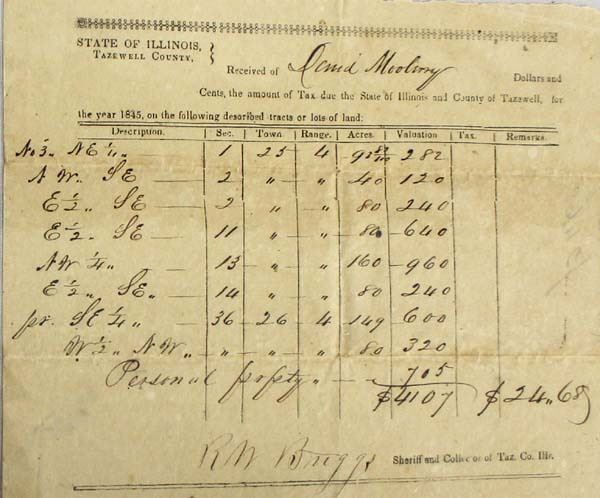 STATE OF ILLINOIS,
TAZEWELL COUNTY,
Received of David Dollars and
Cents, the amount of Tax due the State of Illinois and County of Tazewell, for
the year 1845, on the following described tracts or lots of land:
Description. Sec. Town. Range. Acres. Valuation Tax. Remarks.
No 3. NE ¼ " 1 25 4 282
N W. SE — 2 — " — " — 40 — 120
E ½ " SE — 2 " — " 80 — 240
E ½ " SE — 11 — " — " — 80 — 640
NW ¼ " — 13 — " — " 160 — 960
E ½ " SE " — 14 — " — " 80 — 240
pr. SE ¼ " — 36 — 26 — 4 149 — 600
W ½ " N W " — " — " — " 80 — 320
Personal " — 705
$4107 $24.68
R W Briggs Sheriff and Collector of Taz. Co. Ills.